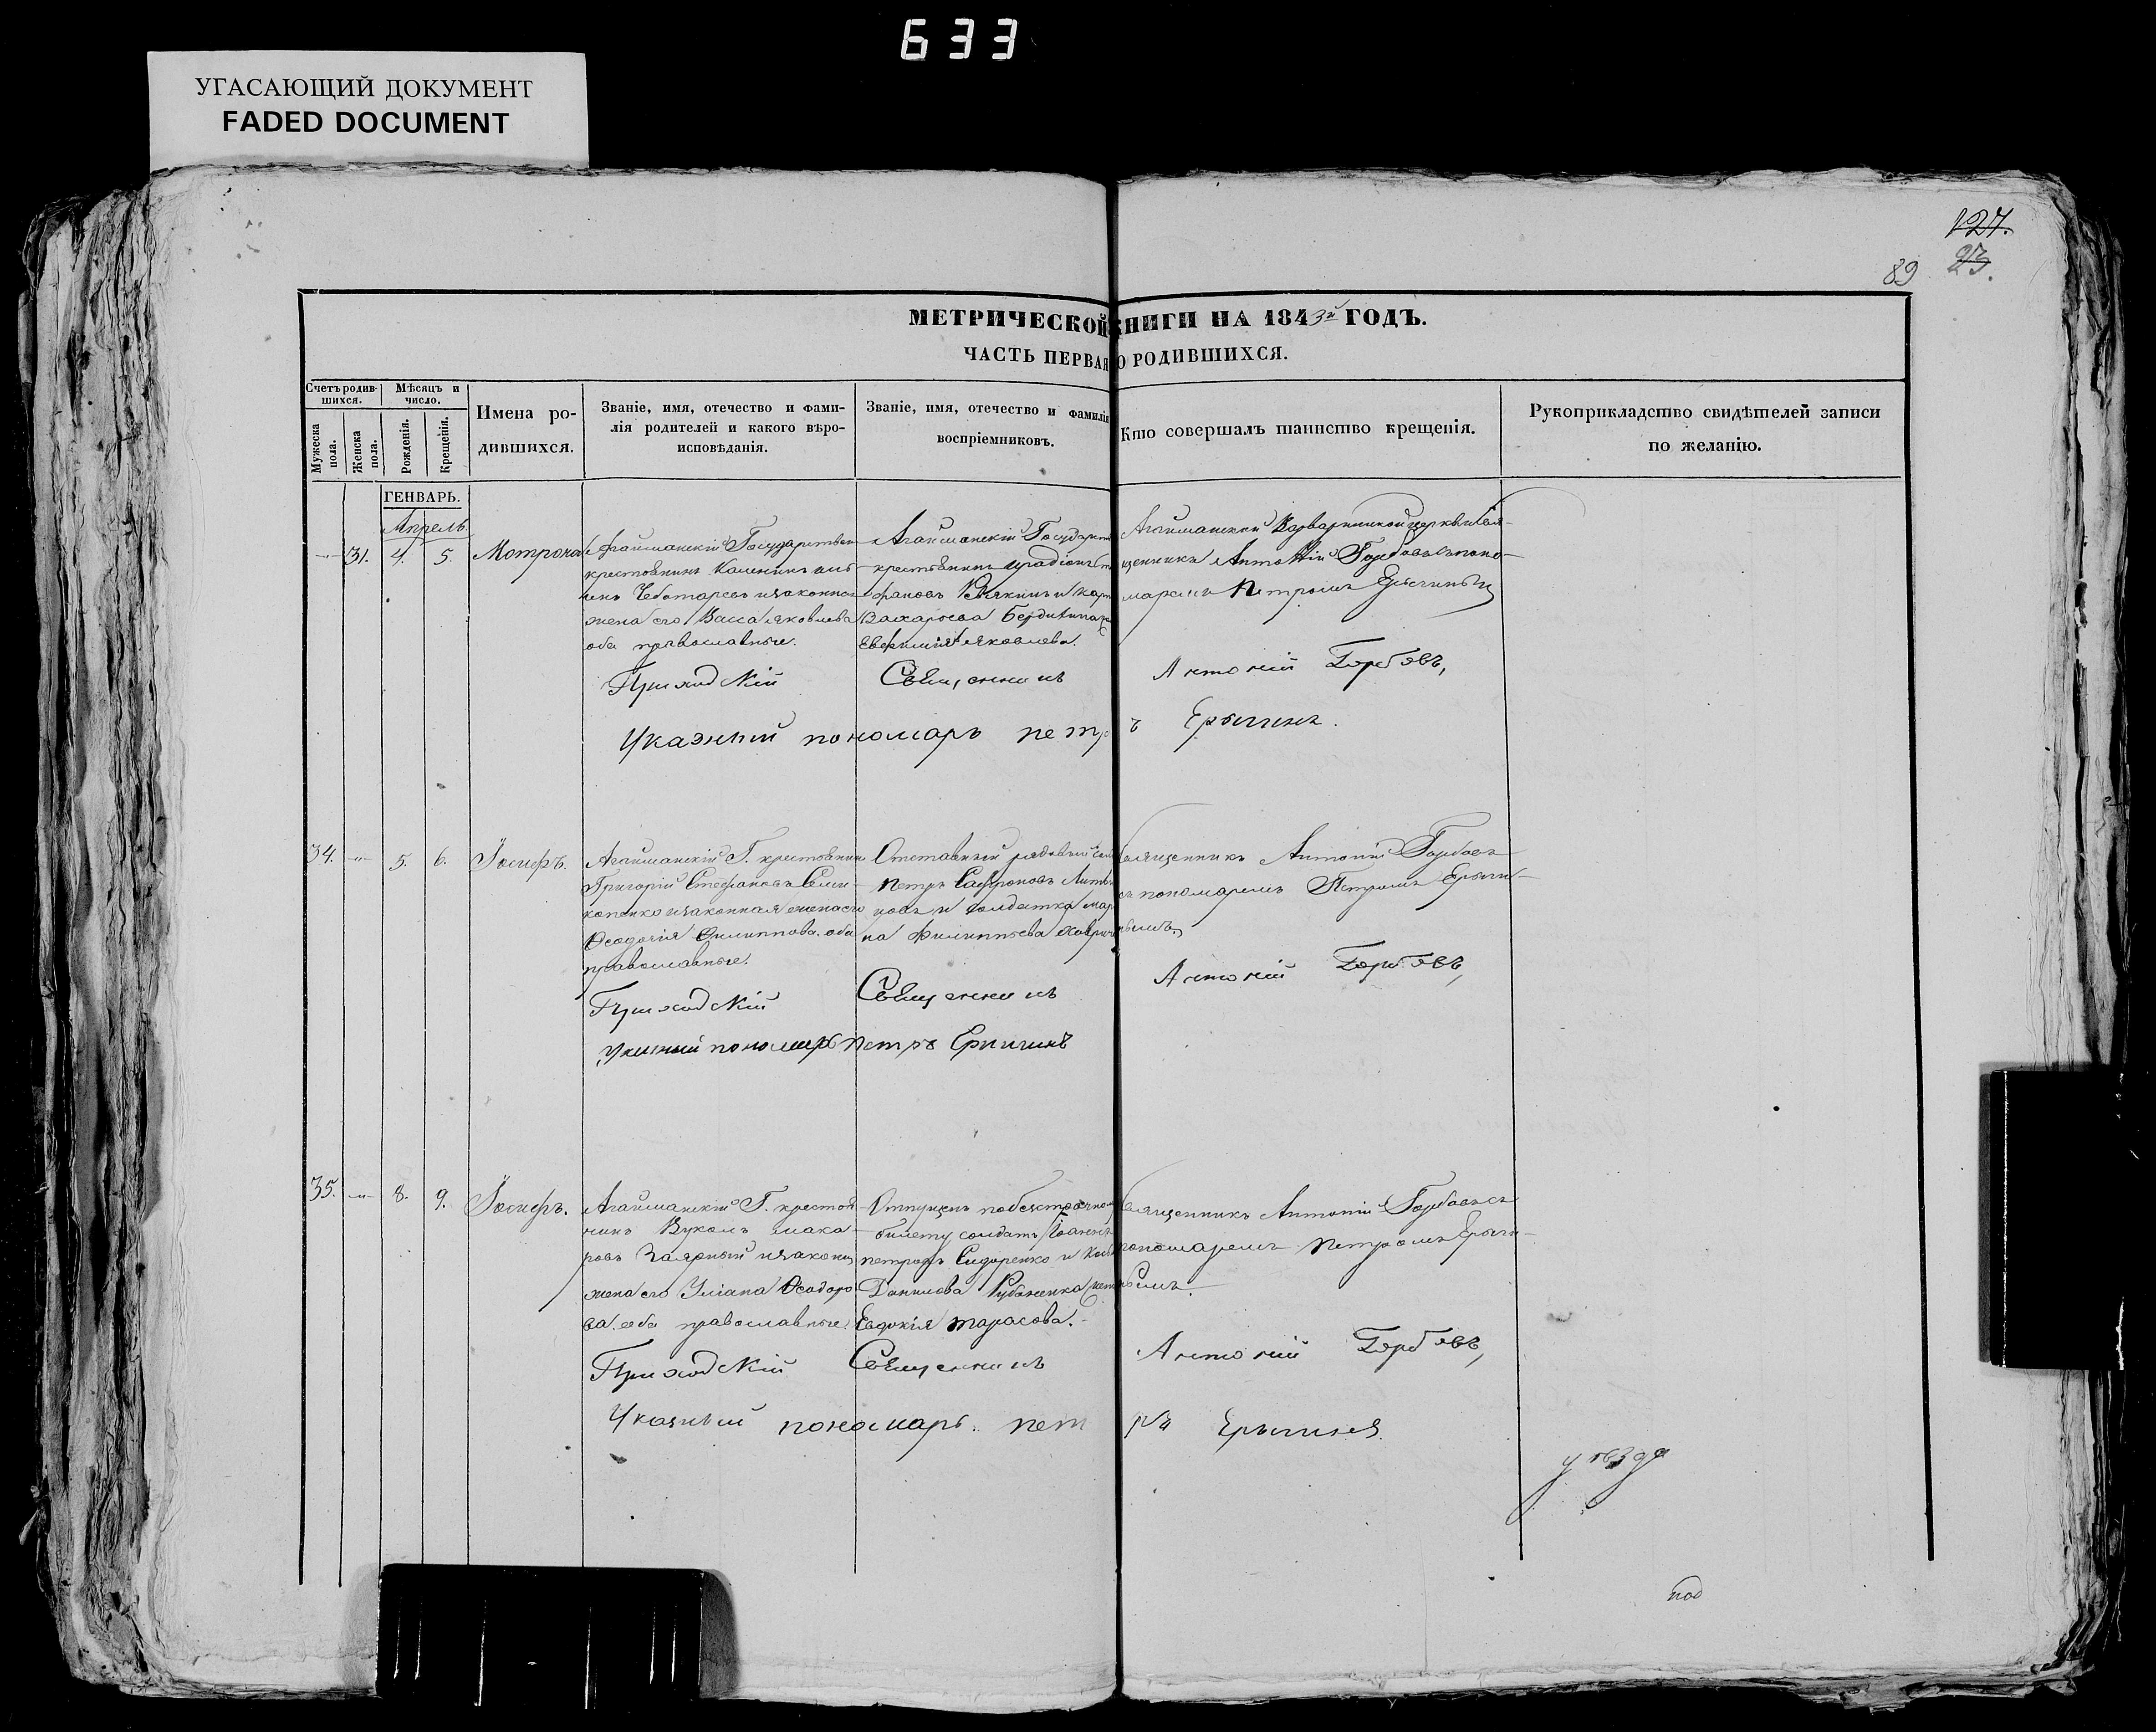 633
УГАСАЮЩИЙ ДОКУМЕНТ
FADED DOCUMENT
127.
23.
89
МЕТРИЧЕСКОЙ КНИГИ НА 1843й ГОДЪ.
ЧАСТЬ ПЕРВАЯ О РОДИВШИХСЯ.
Счетъ родив-
шихся.
Мужеска
пола.
Женска
пола.
Мѣсяцъ и
число.
Рожденія.
Крещенія.
Имена ро-
дившихся.
Званіе, имя, отечество и фами-
лія родителей и какого вѣро-
исповѣданія.
Званіе, имя, отечество и фамилія
воспріемниковъ.
Кто совершалъ таинство крещенія.
Рукоприкладство свидѣтелей записи
по желанію.
ГЕНВАРЬ.
Апрель.
31. 4. 5. Мотрона
Агайманскій Государствен
крестьянинъ
Чеботаревъ изаконная
жена его Васса Яковлева
оба православные.
Агайманскій Государств
крестьянинъ
Захарьева
Евфимія Яковлева.
Агайманской Варваринской церкви Свя-
щенникъ Антоній Горбовъ съ поно-
маремъ Петромъ Ерычинымъ
Приходскій Священникъ Антоній Горбовъ,
Указный пономарь Петръ Ерычинъ.
34. -"- 5. 6. Іосифъ.
Агайманскій Г. крестьянин
Григорій Стефановъ Семи-
копенко изаконная жена его
Ѳеодосія Филиппова. оба
православные.
Отставный рядовый
Петръ Сафроновъ Литви
новъ и солдатка Мар
на Филиппьева
Священникъ Антоній Горбовъ
съ пономаремъ Петромъ Ерычи-
нымъ.
Приходскій Священникъ Антоній Горбовъ,
Указный пономарь Петръ Ерычинъ
35. -"- 8. 9. Іосифъ.
Агайманскій Г. крестья
нинъ Вуколъ Мака-
ровъ Заярный изаконн
жена его Уліана Ѳеодоро
ва. оба православные.
Отпущенъ по безсрочном
билету солдатъ Іоаннъ
Петровъ Сидоренко и
Данилова Рубаненка
Евдокія Тарасова.
Священникъ Антоній Горбовъ съ
пономаремъ Петромъ Ерычи-
нымъ.
Приходскій Священникъ Антоній Горбовъ,
Указный пономарь Петръ Ерычинъ
уѣзда
под